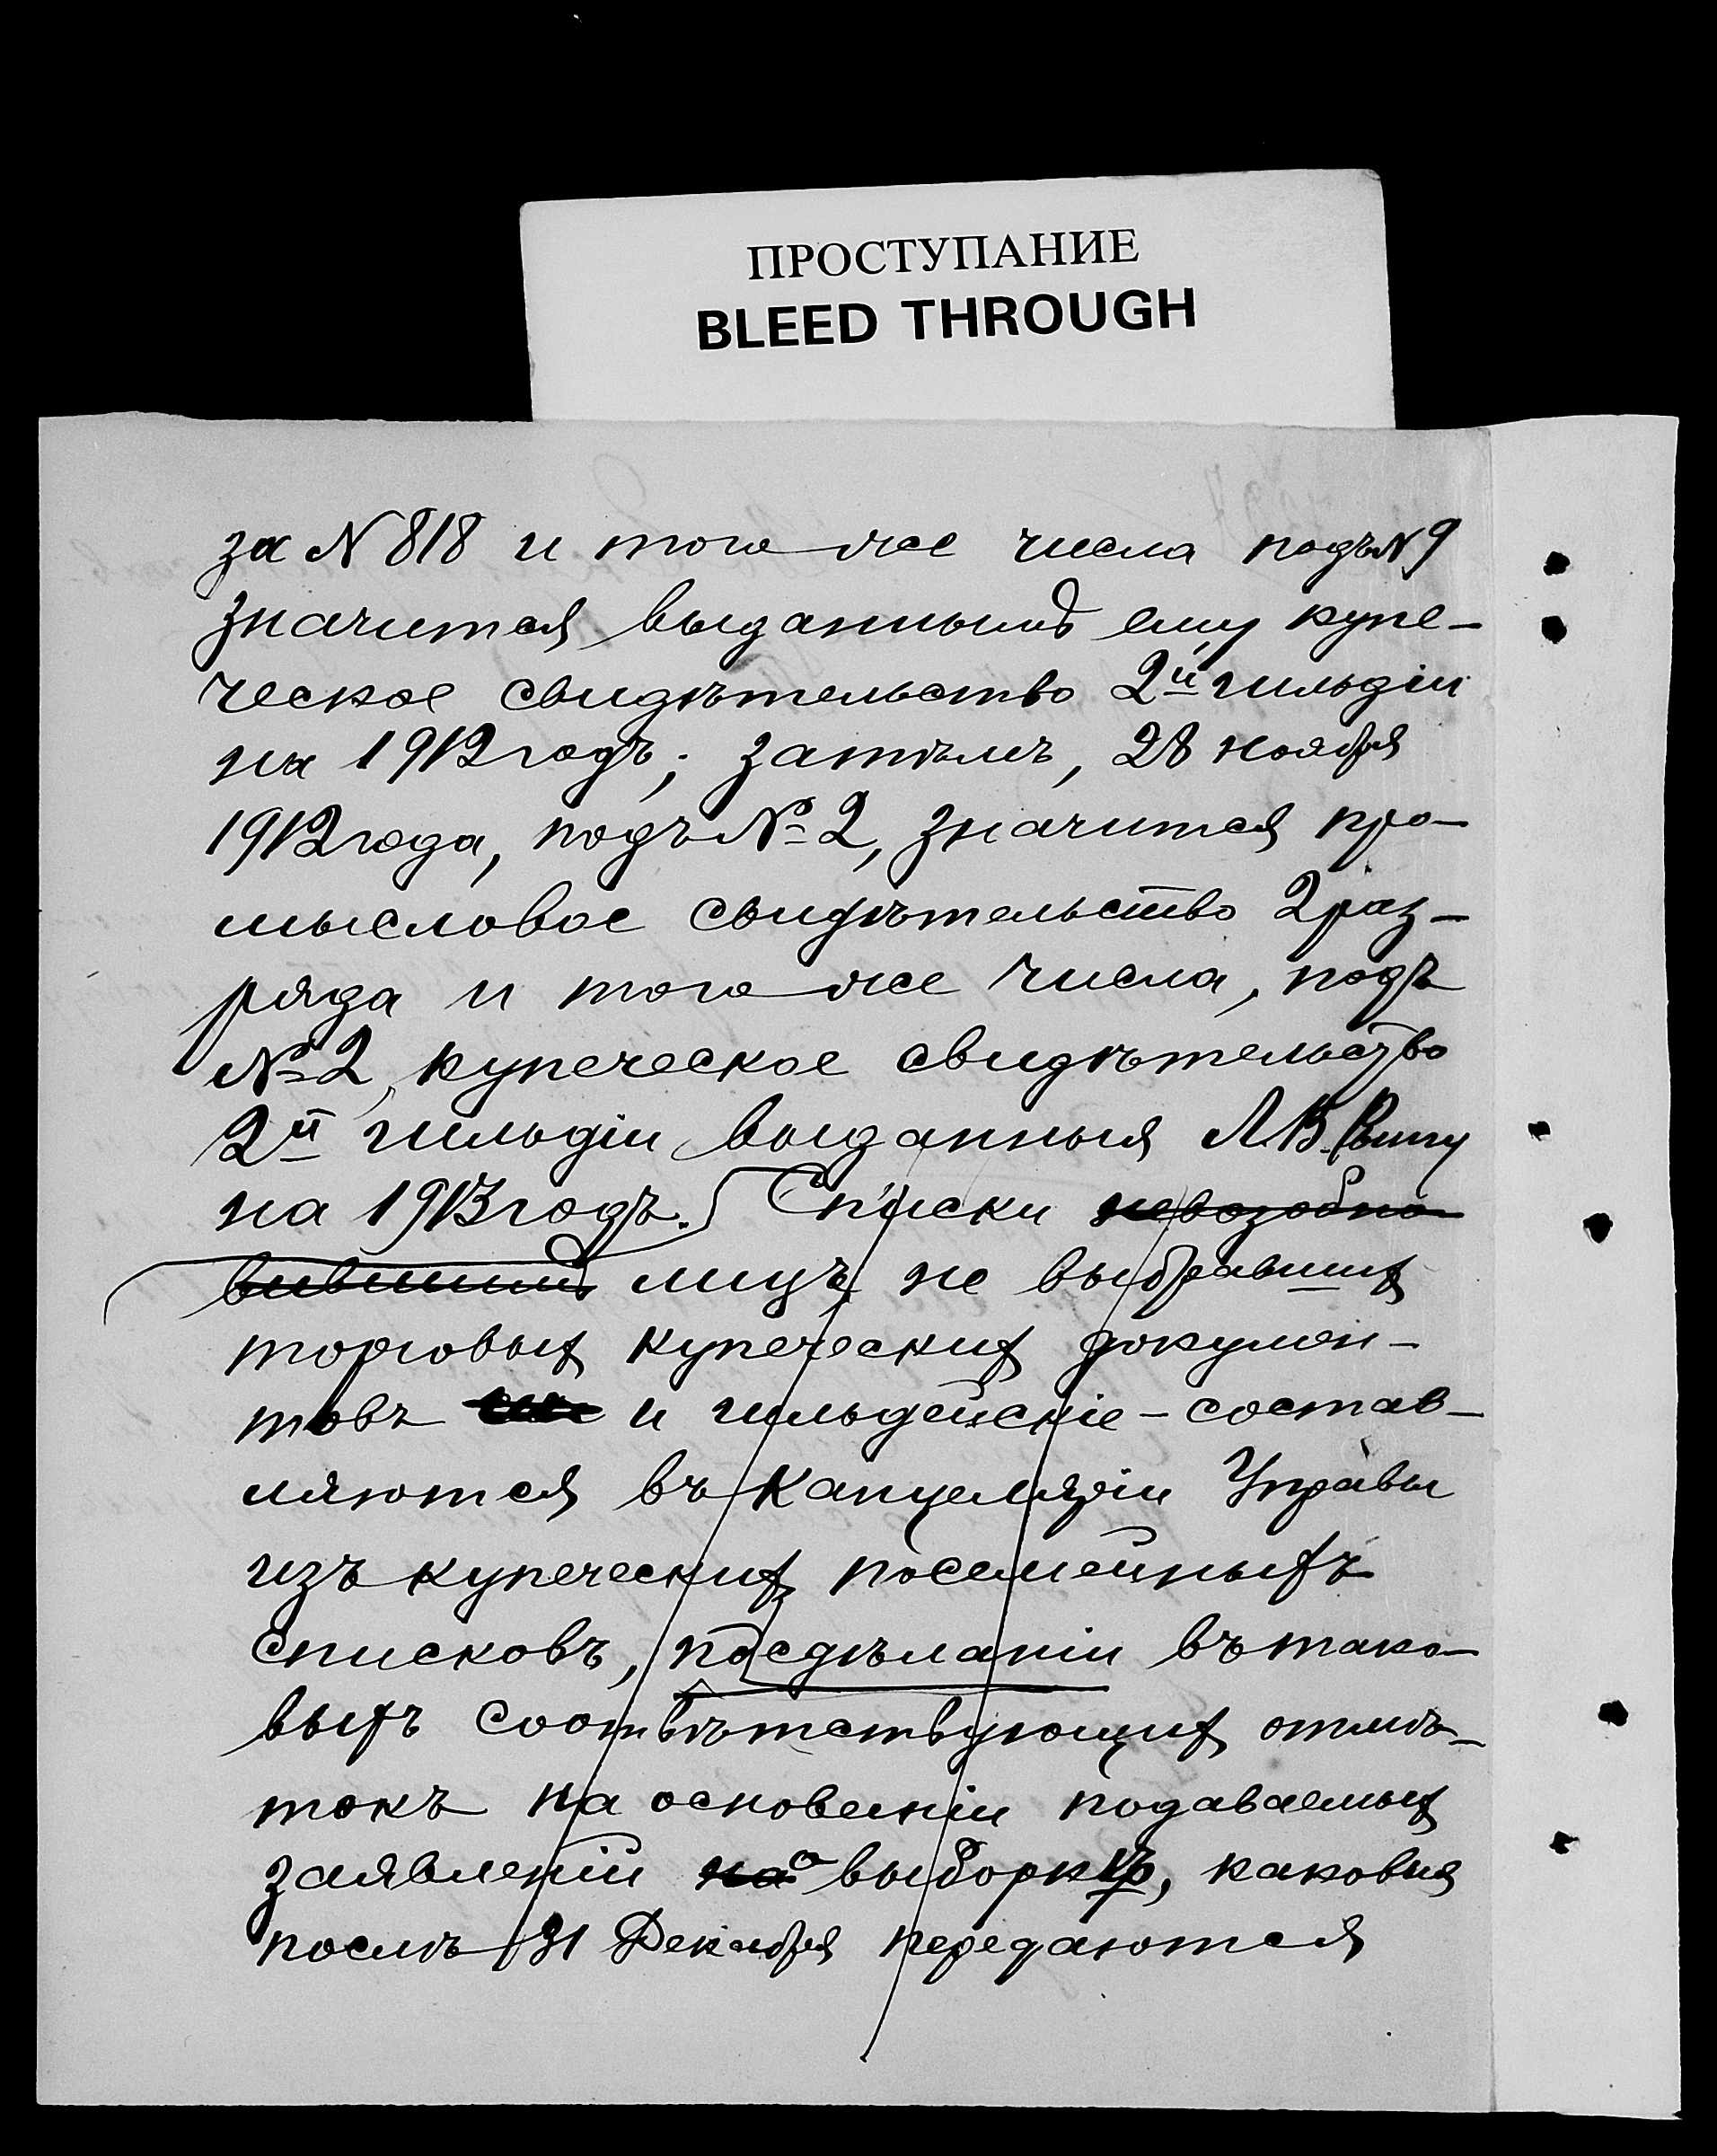 ПРОСТУПАНИЕ
BLEED THROUGH
за N 818 и того же числа подъ N 9
значится выданнымъ ему купе-
ческое свидѣтельство 2й гильдіи
на 1912 годъ; затѣмъ, 28 ноября
1912 года, подъ № 2, значится про-
мысловое свидѣтельство 2 раз-
ряда и того же числа, подъ
№ 2, купеческое свидѣтельство
2й гильдіи выданныя Л. В.
на 1913 годъ. Списки невозобно
вившихъ лицъ не выбравшихъ
торговыхъ купеческихъ докумен-
товъ и гильдейскіе - состав-
ляются въ Канцеляріи Управы
изъ купеческихъ посемейныхъ
списковъ, по сдѣланіи въ тако-
выхъ соотвѣтствующихъ отмѣ-
токъ на основаніи подаваемыхъ
заявленій на о выборкѣ, каковыя
послѣ 31 Декабря передаются